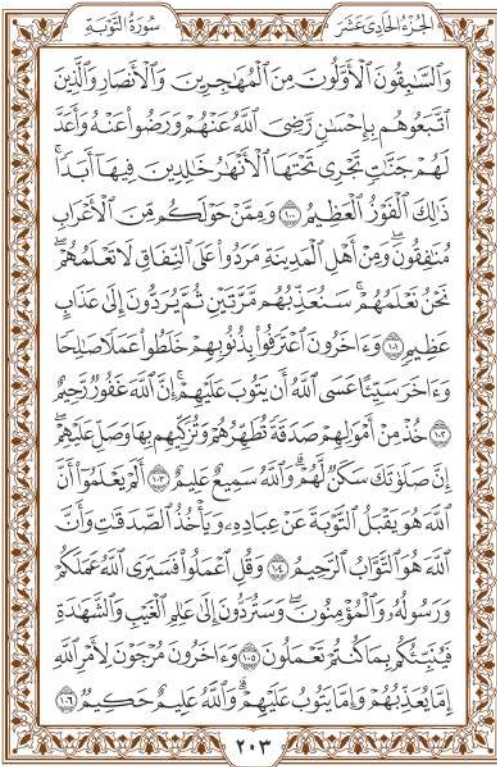 الجُزْءُ الحَادِى عَشَرَ
سُورَةُ التَّوْبَةِ
وَٱلسَّٰبِقُونَ ٱلْأَوَّلُونَ مِنَ ٱلْمُهَٰجِرِينَ وَٱلْأَنصَارِ وَٱلَّذِينَ
ٱتَّبَعُوهُم بِإِحْسَٰنٍ رَّضِىَ ٱللَّهُ عَنْهُمْ وَرَضُوا۟ عَنْهُ وَأَعَدَّ
لَهُمْ جَنَّٰتٍ تَجْرِى تَحْتَهَا ٱلْأَنْهَٰرُ خَٰلِدِينَ فِيهَآ أَبَدًا ۚ
ذَٰلِكَ ٱلْفَوْزُ ٱلْعَظِيمُ ١٠٠ وَمِمَّنْ حَوْلَكُم مِّنَ ٱلْأَعْرَابِ
مُنَٰفِقُونَ ۖ وَمِنْ أَهْلِ ٱلْمَدِينَةِ مَرَدُوا۟ عَلَى ٱلنِّفَاقِ لَا تَعْلَمُهُمْ ۖ
نَحْنُ نَعْلَمُهُمْ ۚ سَنُعَذِّبُهُم مَّرَّتَيْنِ ثُمَّ يُرَدُّونَ إِلَىٰ عَذَابٍ
عَظِيمٍ ١٠١ وَءَاخَرُونَ ٱعْتَرَفُوا۟ بِذُنُوبِهِمْ خَلَطُوا۟ عَمَلًا صَٰلِحًا
وَءَاخَرَ سَيِّئًا عَسَى ٱللَّهُ أَن يَتُوبَ عَلَيْهِمْ ۚ إِنَّ ٱللَّهَ غَفُورٌ رَّحِيمٌ
١٠٢ خُذْ مِنْ أَمْوَٰلِهِمْ صَدَقَةً تُطَهِّرُهُمْ وَتُزَكِّيهِم بِهَا وَصَلِّ عَلَيْهِمْ ۖ
إِنَّ صَلَوٰتَكَ سَكَنٌ لَّهُمْ ۗ وَٱللَّهُ سَمِيعٌ عَلِيمٌ ١٠٣ أَلَمْ يَعْلَمُوٓا۟ أَنَّ
ٱللَّهَ هُوَ يَقْبَلُ ٱلتَّوْبَةَ عَنْ عِبَادِهِۦ وَيَأْخُذُ ٱلصَّدَقَٰتِ وَأَنَّ
ٱللَّهَ هُوَ ٱلتَّوَّابُ ٱلرَّحِيمُ ١٠٤ وَقُلِ ٱعْمَلُوا۟ فَسَيَرَى ٱللَّهُ عَمَلَكُمْ
وَرَسُولُهُۥ وَٱلْمُؤْمِنُونَ ۖ وَسَتُرَدُّونَ إِلَىٰ عَٰلِمِ ٱلْغَيْبِ وَٱلشَّهَٰدَةِ
فَيُنَبِّئُكُم بِمَا كُنتُمْ تَعْمَلُونَ ١٠٥ وَءَاخَرُونَ مُرْجَوْنَ لِأَمْرِ ٱللَّهِ
إِمَّا يُعَذِّبُهُمْ وَإِمَّا يَتُوبُ عَلَيْهِمْ ۗ وَٱللَّهُ عَلِيمٌ حَكِيمٌ ١٠٦
٢٠٣